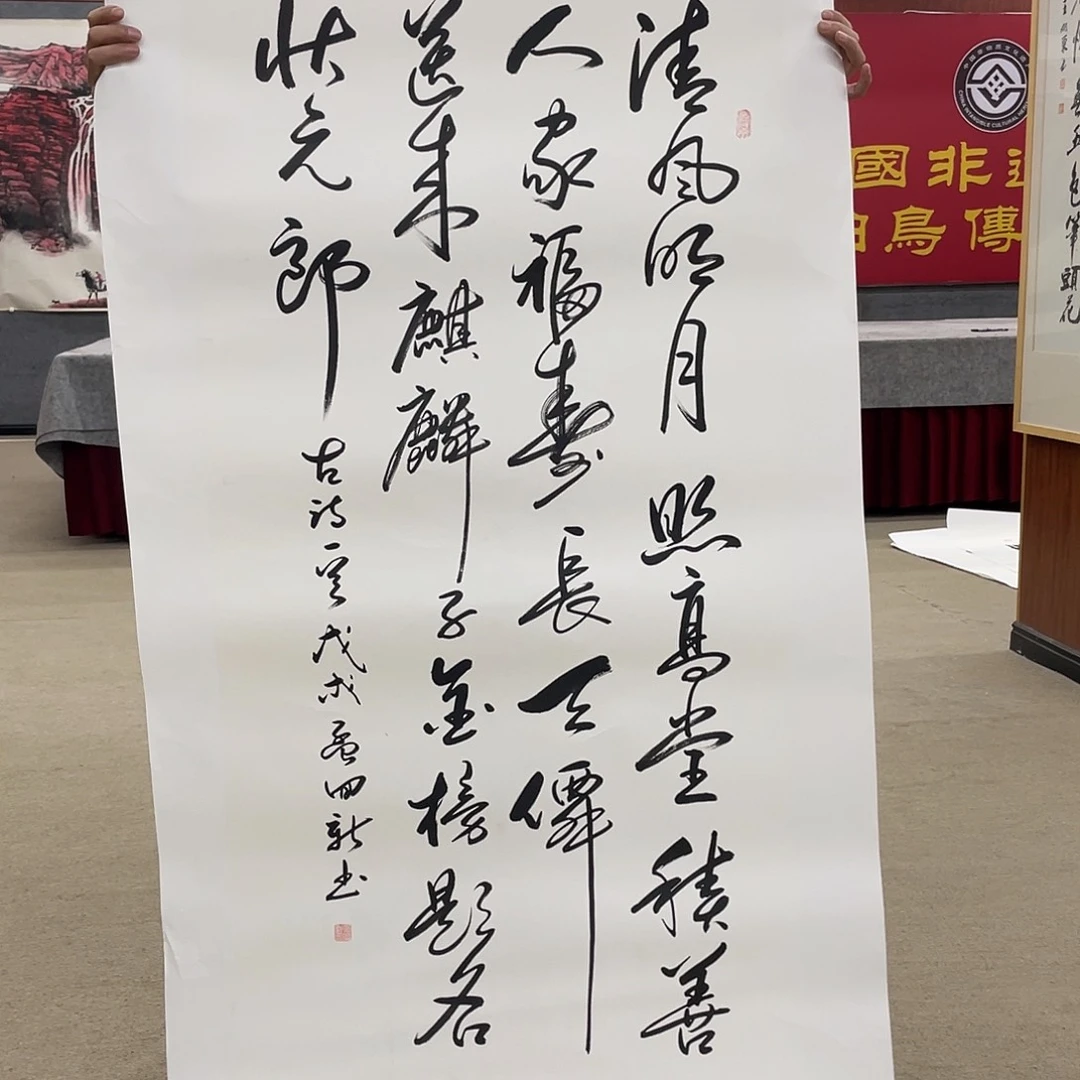 清风明月照高堂积善
人家福寿长天僊
送来麒麟子金榜题名
状元郎
古诗一首戊戌孟田新书
國非遗
鳥傳
五色筆頭花